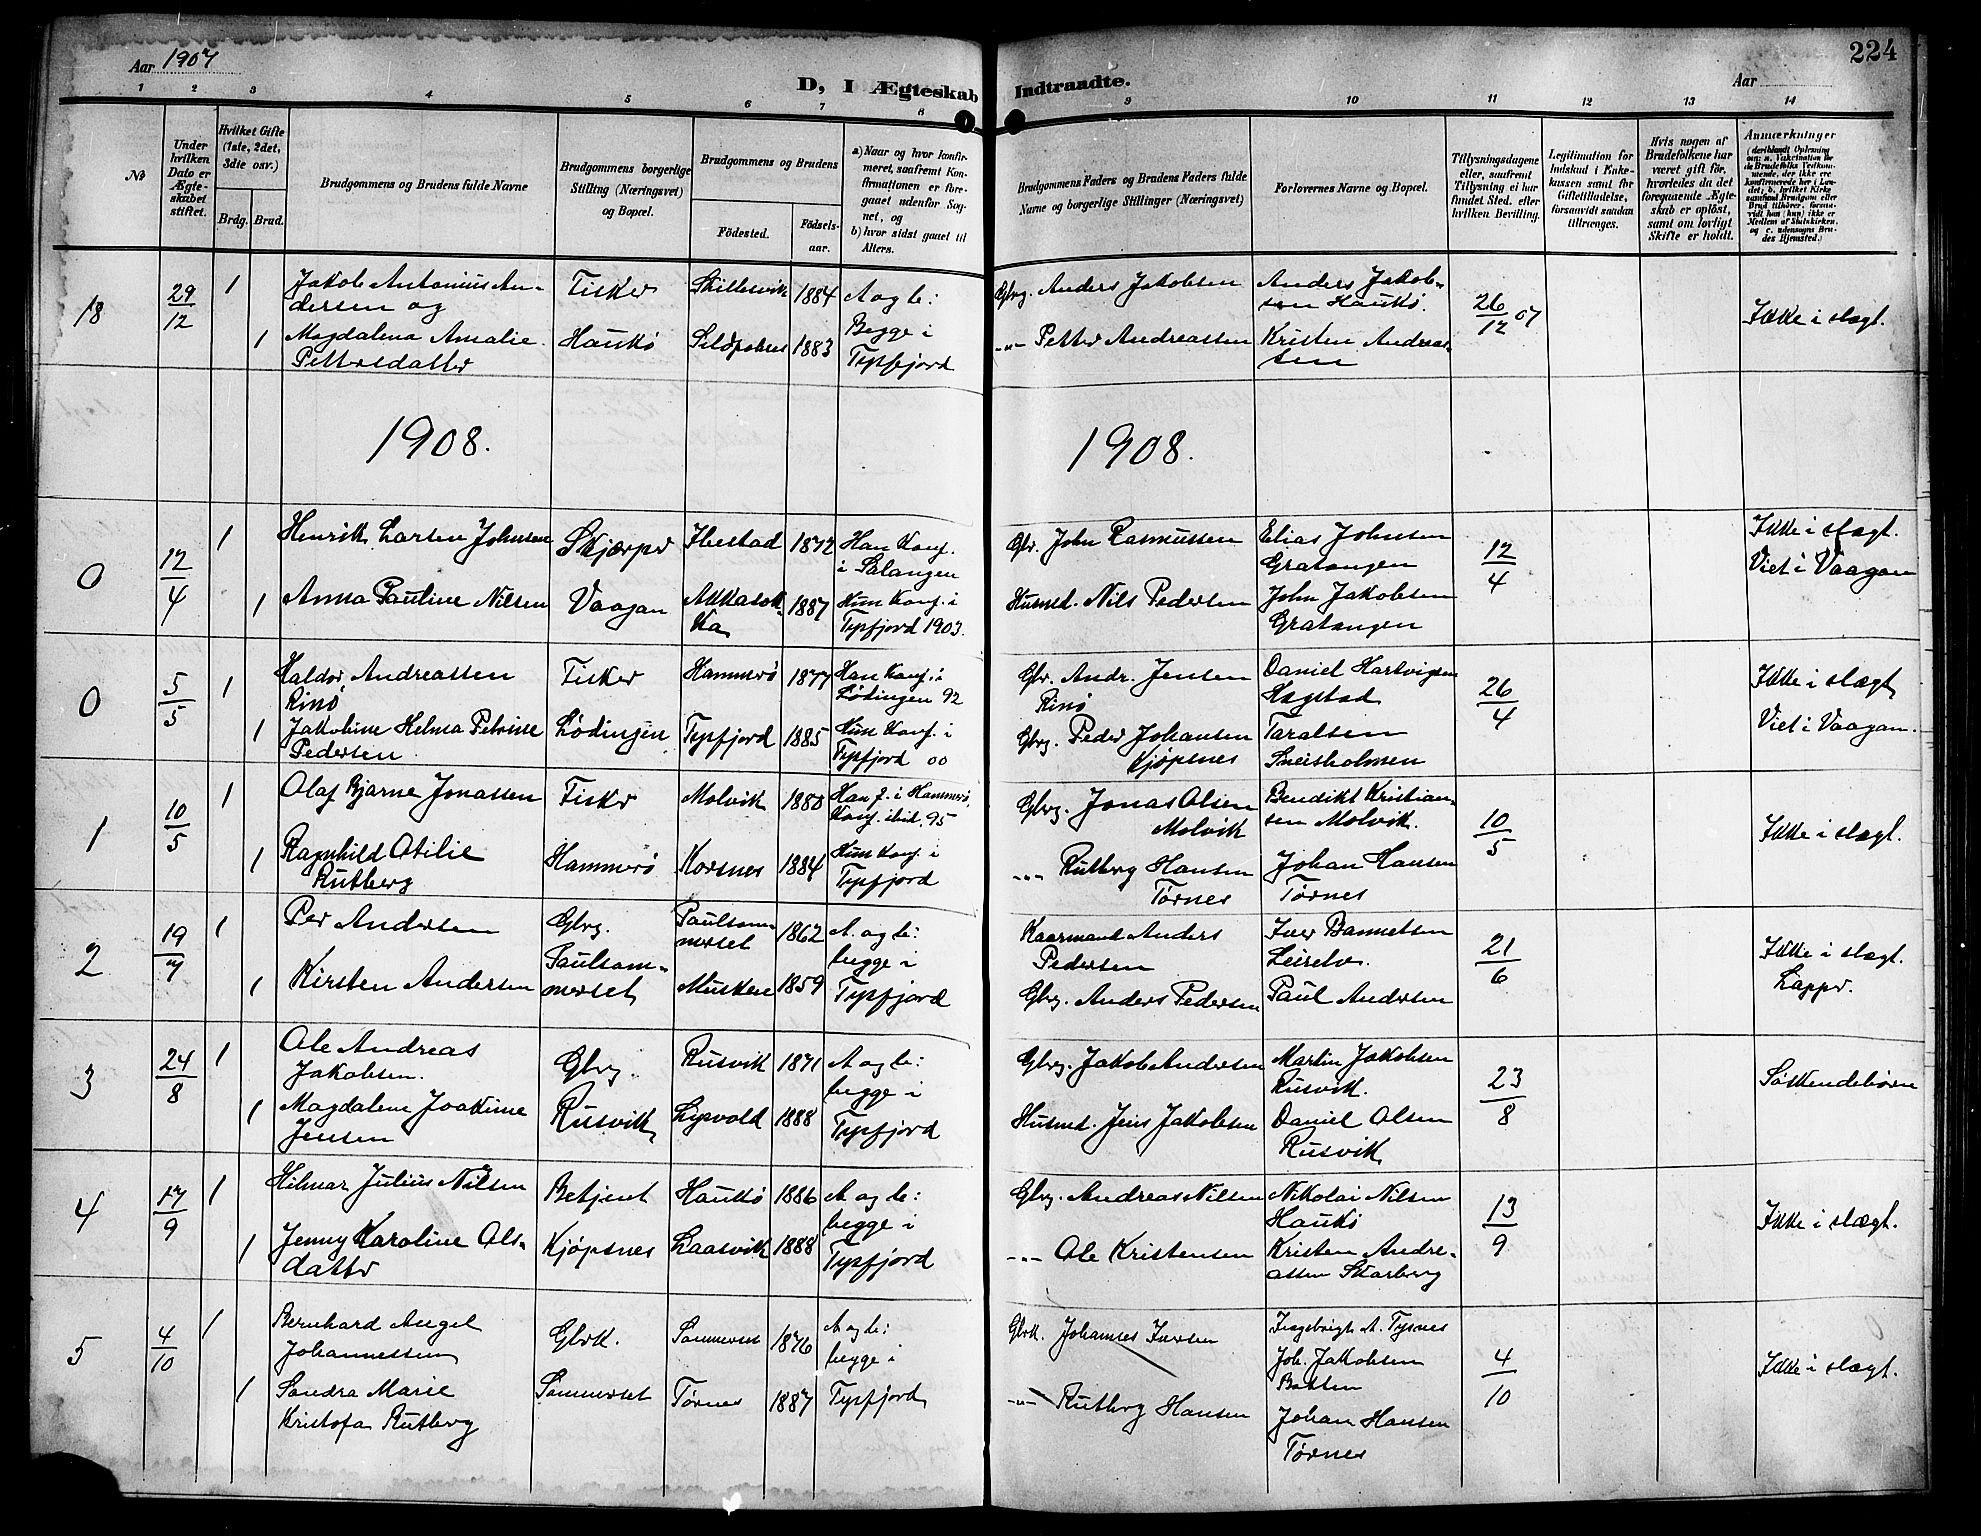 Aar 1907
D, I Ægteskab Indtraadte.
Aar
224
1 2 3 4 5 6 7 8 9 10 11 12 13 14
No
Under hvilken Dato er Ægteskabet stiftet.
Hvilket Gifte (1ste, 2det, 3die osv.)
Brdg. Brud.
Brudgommens og Brudens fulde Navne
Brudgommens borgerlige Stilling (Næringsvei) og Bopæl.
Brudgommens og Brudens
Fødested.
Fødselsaar.
a) Naar og hvor konfirmeret, saafremt Konfirmationen er foregaaet udenfor Sognet, og
b) hvor sidst gaaet til Alters.
Brudgommens Faders og Brudens Faders fulde Navne og borgerlige Stillinger (Næringsvei)
Forlovernes Navne og Bopæl.
Tillysningsdagene eller, saafremt Tillysning ei har fundet Sted, efter hvilken Bevilling.
Legitimation for Indskud i Enkekassen samt for Giftetilladelse, forsaavidt saadan tiltrænges.
Hvis nogen af Brudefolkene har været gift før, hvorledes da det foregaaende Ægteskab er opløst, samt om lovligt Skifte er holdt.
Anmærkninger
18
29/12
1
Jakob Antonius Andersen og
Fisker
Skillesvik
1884
A og b:
Gbrg. Anders Jakobsen
Anders Jakobsen Haukø.
26/12 07
Ikke i slægt.
1
Magdalena Amalie Pettersdatter
Haukø
Sildpolnes
1883
Begge i Tysfjord
-"- Petter Andreassen
Kristen Andreassen
1908.
1908.
0
12/4
1
Henrik Larsen Johnsen
Skjærper
Ibestad
1872
Han Konf. i Salangen
Gbr. John Rasmussen
Elias Johnsen Gratangen
12/4
Ikke i slægt.
Viet i Vaagan
1
Anna Pauline Nilsen
Vaagan
1887
Hun Konf. i Tysfjord 1903.
Husmd. Nils Pedersen
John Jakobsen Gratangen
0
5/5
1
Haldor Andreassen Rinø
Fisker
Hammerø
1877
Han Konf. i Lødingen 92
Gbr. Andr. Jensen Rinø
Daniel Hartvigsen Hagstad
26/4
Ikke i slægt
Viet i Vaagan.
1
Jakobine Helma Petrine Pedersen
Lødingen
Tysfjord
1885
Hun Konf. i Tysfjord 00
Gbrg. Peder Johansen Kjøpsnes
Taralsen
1
10/5
1
Olaf Bjarne Jonassen
Fisker
Molvik
1880
Han f. i Hammerø, Konf. ibid. 95
Gbrg. Jonas Olsen Molvik
Bendikt Kristiansen Molvik.
10/5
Ikke i slægt.
1
Ragnhild Otilie Rutberg
Hammerø
Korsnes
1884
Hun Konf. i Tysfjord
-"- Rutberg Hansen Tørnes
Johan Hansen Tørnes
2
19/7
1
Per Andersen
Gbrg.
Paulsommerset
1862
A. og b: begge i Tysfjord
Kaarmand Anders Pedersen
Iver Bannetsen Leirelv.
21/6
Ikke i slægt.
Lapper.
1
Kirsten Andersen
Paulsommerset
Musken
1859
Gbrg. Anders Pedersen
Paul Andersen
3
24/8
1
Ole Andreas Jakobsen.
Gbrg.
Rusvik
1871
A og b: begge i Tysfjord
Gbrg. Jakob Andersen
Martin Jakobsen Rusvik.
23/8
Søskendebørn
1
Magdalene Joakime Jensen
Rusvik
Lysvold
1888
Husmd. Jens Jakobsen
Daniel Olsen Rusvik
4
17/9
1
Hilmar Julius Nilsen
Betjent
Haukø
1886
A og b: begge i Tysfjord
Gbrg. Andreas Nilsen
Nikolai Nilsen Haukø
13/9
Ikke i slægt.
1
Jenny Karoline Olsdatter
Kjøpsnes
Laasvik
1888
-"- Ole Kristensen
Kristen Andreassen Skarberg
5
4/10
1
Bernhard Angel Johannessen
Gbrk.
Sommerset
1876
A og b: begge i Tysfjord
Gbrk. Johannes Iversen
Ingebrigt A. Tysnes
Joh. Jakobsen Bakken
4/10
Ikke i slægt.
1
Sandra Marie Kristofa Rutberg
Sommerset
Tørnes
1887
-"- Rutberg Hansen
Johan Hansen Tørnes